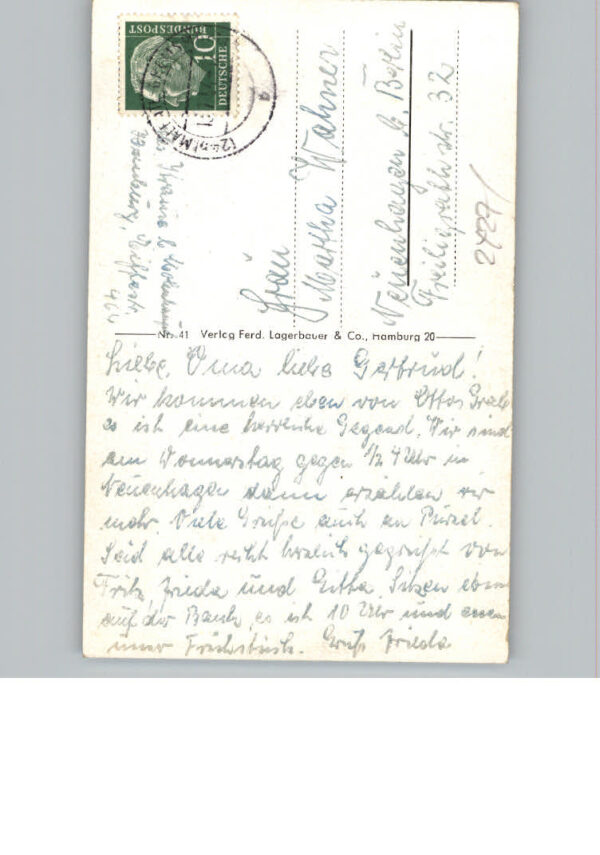 DEUTSCHE
BUNDESPOST
10
Frau
Martha Wahner
Neuenhagen b. Berlin
Freiligrathstr. 32
2427/
Nr. 41 Verlag Ferd. Lagerbauer & Co., Hamburg 20
Liebe Oma liebe Gertrud!
Wir kommen eben von Ottos Grab
es ist eine herrliche Gegend. Wir sind
am Donnerstag gegen 1/2 4 Uhr in
Neuenhagen dann erzählen wir
mehr. Viele Grüße auch an Purzel.
Seid alle recht herzlich gegrüßt von
Fritz, Frieda und Gitta. Sitzen eben
auf der Bank, es ist 10 Uhr und essen
unser Frühstück. Gruß Frieda